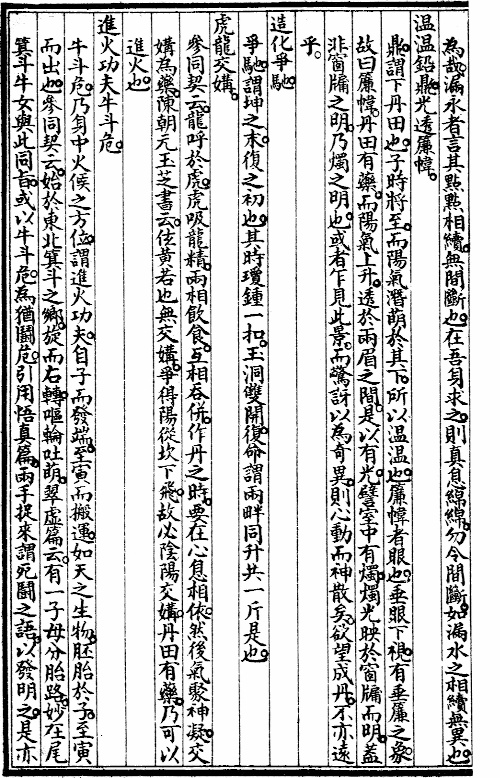 為哉漏水者言其點點相續無間斷也在吾身求之則真息綿綿勿令間斷如漏水之相續無異也
溫溫鉛鼎光透簾幃
鼎謂下丹田也子時將至而陽氣潛萌於其下所以溫溫也簾幃者眼也垂眼下視有垂簾之象
故曰簾幃丹田有藥而陽氣上升透於兩眉之間是以有光譬室中有燭燭光映於窗牖而明蓋
非窗牖之明乃燭之明也或者乍見此景而驚訝以為奇異則心動而神散矣欲望成丹不亦遠
乎
造化爭馳
爭馳謂坤之末復之初也其時瓊鍾一扣玉洞雙開復命謂兩畔同升共一斤是也
虎龍交媾
參同契云龍呼於虎虎吸龍精兩相飲食互相吞併作丹之時要在心息相依然後氣聚神凝交
媾為藥陳朝元玉芝書云玄黃若也無交媾爭得陽從坎下飛故必陰陽交媾丹田有藥乃可以
進火也
進火功夫牛斗危
牛斗危乃身中火候之方位謂進火功夫自子而發端至寅而搬運如天之生物胚胎於子至寅
而出也參同契云始於東北箕斗之鄉旋而右轉嘔輪吐萌翠虛篇云有一子母分胎路妙在尾
箕斗牛女與此同旨或以牛斗危為猶鬭危引用悟真篇兩手捉來謂死鬭之語以發明之是亦